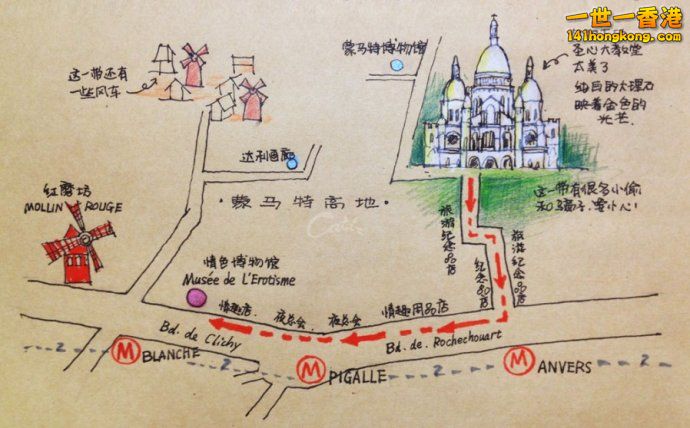 一世一香港
141hongkong.com
蒙马特博物馆
圣心大教堂
太美了
纯白的大理石
映着金色的
光芒.
这一带还有
一些风车
达利画廊
红磨坊
MOLLIN ROUGE
·蒙马特高地·
这一带有很多小偷
和骗子,要小心!
旅游纪念品店
纪念品店
旅游纪念品店
情色博物馆
Musée de L'Erotisme
情趣店. 夜总会 夜总会 情趣用品店
Bd. de Clichy
Bd. de. Rochechouart
2
M BLANCHE
2
M PIGALLE
2
M ANVERS
2